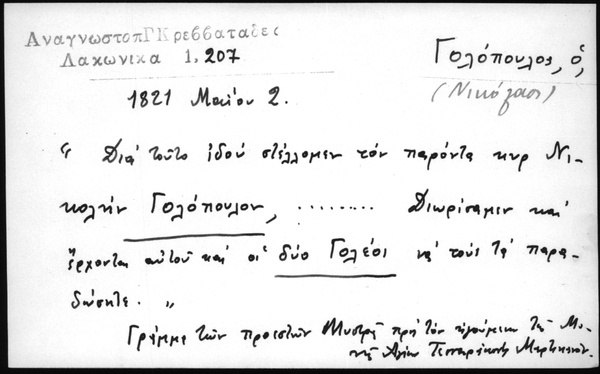 ΑναγνωστοπΓΚρεββαταδες
Λακωνικα 1, 207
Γολόπουλος, ὁ,
(Νικόλαος)
1821 Μαΐου 2.
" Διὰ τοῦτο ἰδού στέλλομεν τόν παρόντα κυρ Νι-
κολήν Γολόπουλον, ........ Διωρίσαμεν καί
ἔρχονται αὐτοῦ καί οἱ δύο Γολέοι νά τούς τά παρα-
δώσητε. "
Γράμμα τῶν προεστῶν Μυστρᾶ πρός τόν ἡγούμενον τῆς Μο-
νῆς Ἁγίων Τεσσαράκοντα Μαρτύρων.